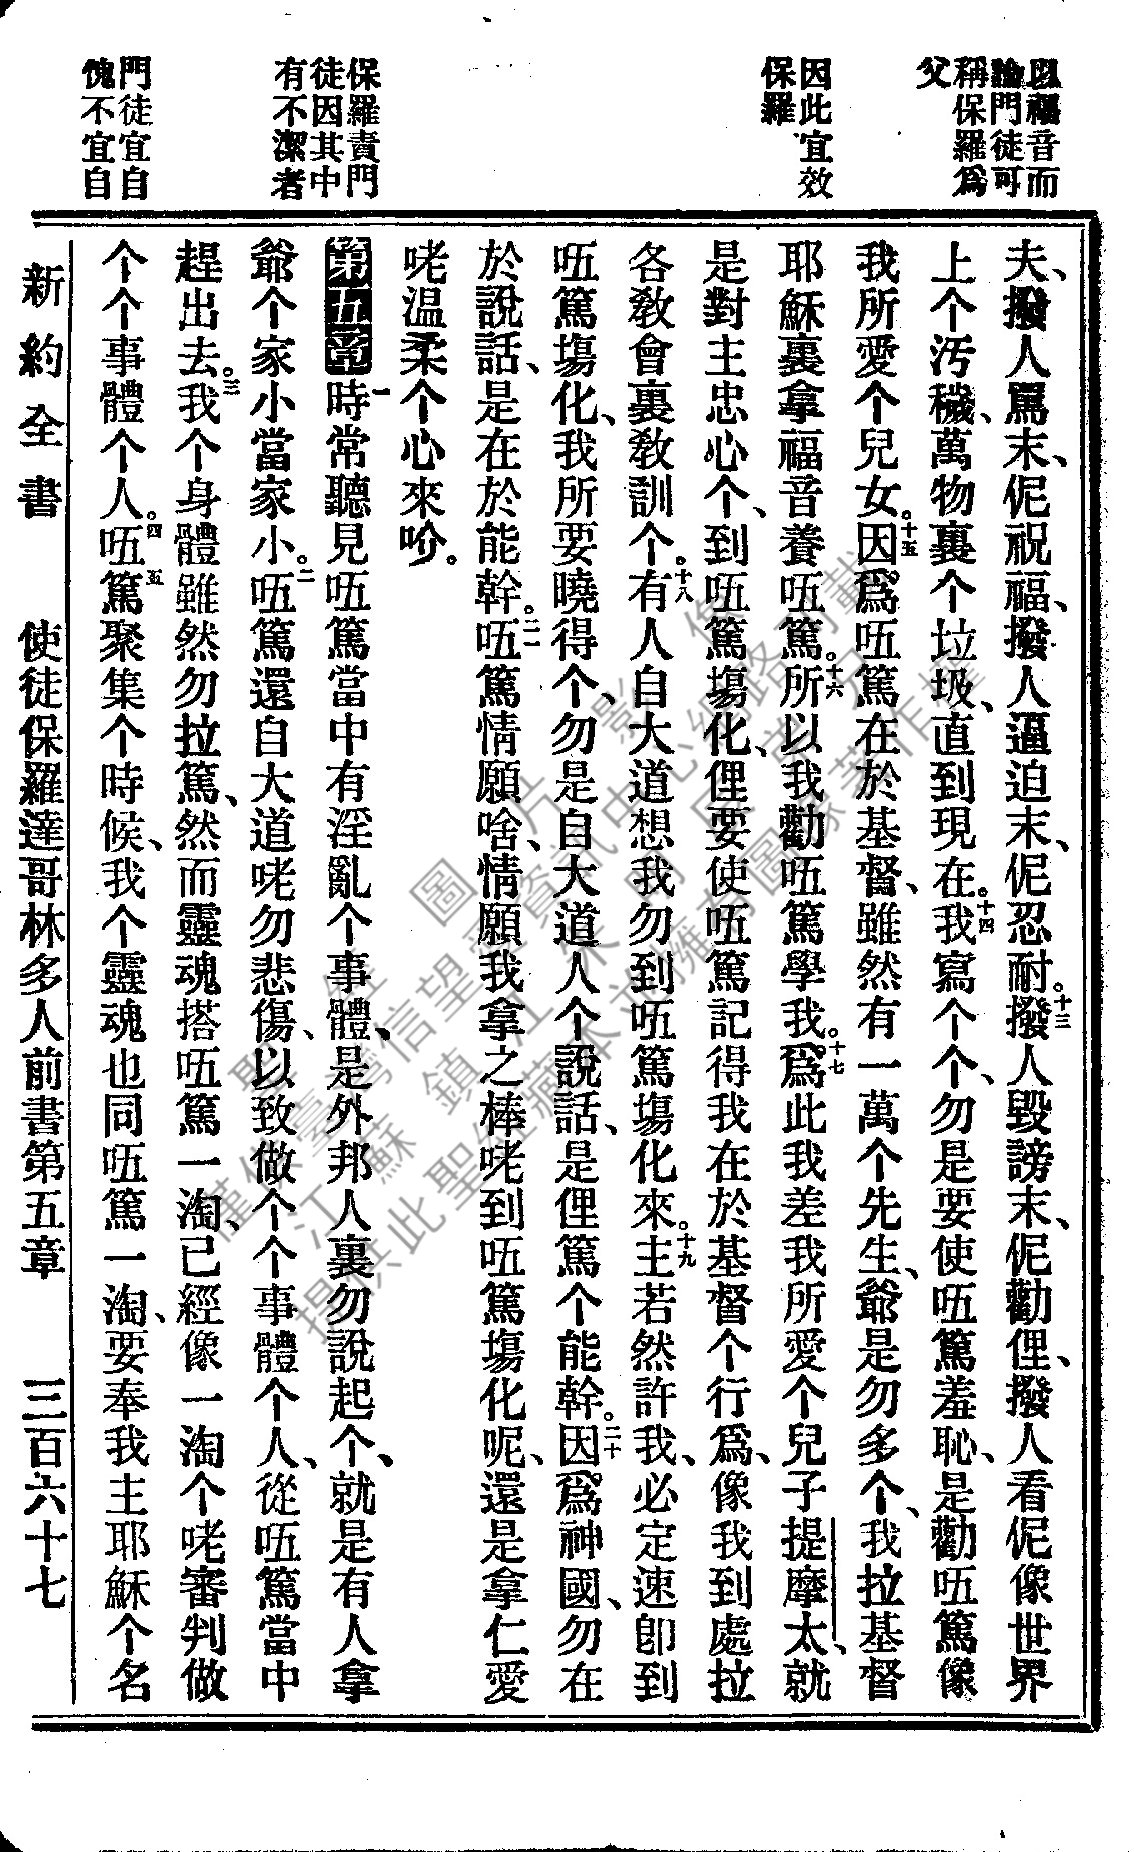 以福音而
論門徒可
稱保羅爲
父
因此宜效
保羅
保羅責門
徒因其中
有不潔者
門徒宜自
愧不宜自
夫、撥人罵末、伲祝福、撥人逼迫末、伲忍耐。十三撥人毀謗末、伲勸俚、撥人看伲像世界
上个污穢、萬物裏个垃圾、直到現在。十四我寫个个、勿是要使㕶篤羞恥、是勸㕶篤像
我所愛个兒女。十五因爲㕶篤在於基督、雖然有一萬个先生、爺是勿多个、我拉基督
耶穌裏拿福音養㕶篤。十六所以我勸㕶篤學我。十七爲此我差我所愛个兒子提摩太、就
是對主忠心个、到㕶篤塲化、俚要使㕶篤記得我在於基督个行爲、像我到處拉
各敎會裏敎訓个。十八有人自大道想我勿到㕶篤塲化來。十九主若然許我、必定速卽到
㕶篤塲化、我所要曉得个、勿是自大道人个說話、是俚篤个能幹。二十因爲神國、勿在
於說話、是在於能幹。二一㕶篤情願啥、情願我拿之棒咾到㕶篤塲化呢、還是拿仁愛
咾温柔个心來吤。
第五章一時常聽見㕶篤當中有淫亂个事體、是外邦人裏勿說起个、就是有人拿
爺个家小當家小。二㕶篤還自大道咾勿悲傷、以致做个个事體个人、從㕶篤當中
趕出去。三我个身體雖然勿拉篤、然而靈魂搭㕶篤一淘、已經像一淘个咾審判做
个个事體个人。四㕶五篤聚集个時候、我个靈魂也同㕶篤一淘、要奉我主耶穌个名
新約全書 使徒保羅達哥林多人前書第五章 三百六十七
圖片影像
聖經
僅供臺灣信望愛資訊中心網路刊載
提供此聖經藏本並擁有圖像著作權